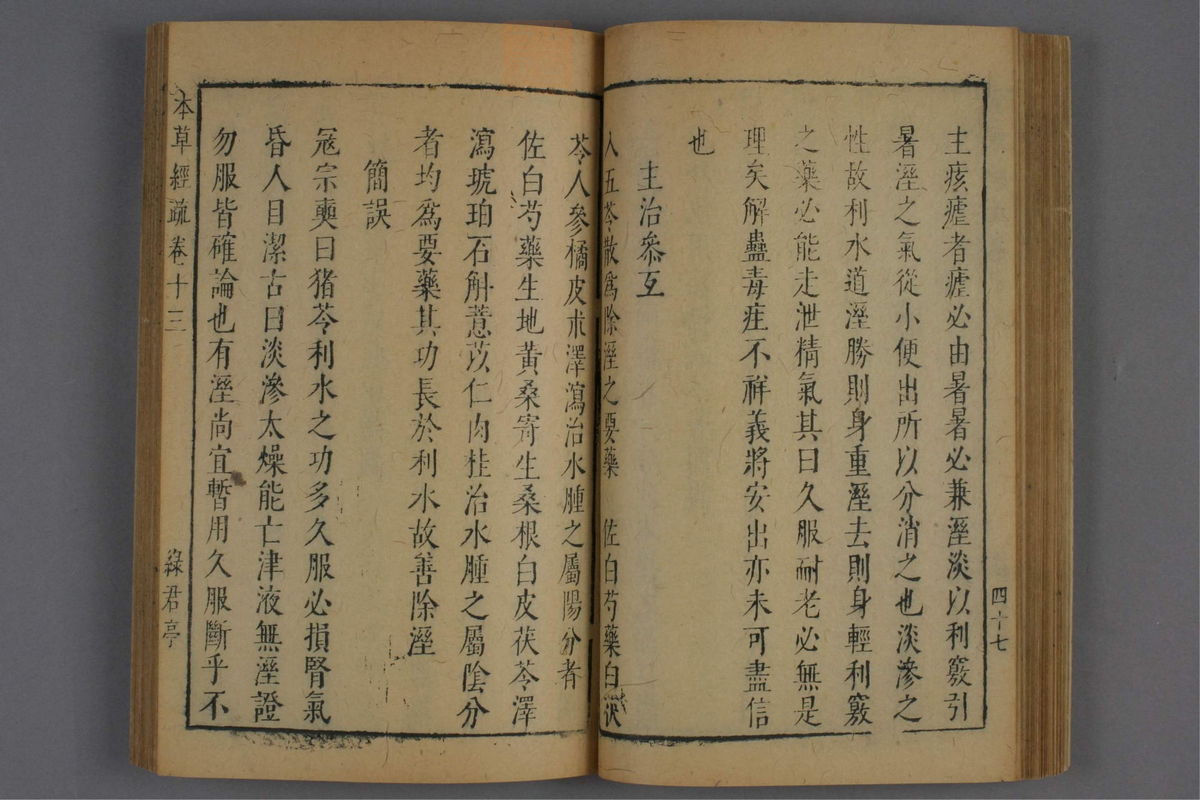 主痎瘧者瘧必由暑暑必兼溼淡以利竅引
暑溼之氣從小便出所以分消之也淡滲之
性故利水道溼勝則身重溼去則身輕利竅
之藥必能走泄精氣其曰久服耐老必無是
理矣解蠱毒疰不祥義將安出亦未可盡信
也
主治叅互
入五苓散爲除溼之要藥　佐白芍藥白茯
苓人參橘皮朮澤瀉治水腫之屬陽分者
佐白芍藥生地黃桑寄生桑根白皮茯苓澤
瀉琥珀石斛薏苡仁肉桂治水腫之屬陰分
者均爲要藥其功長於利水故善除溼
簡誤
寇宗奭曰猪苓利水之功多久服必損腎氣
昏人目潔古曰淡滲太燥能亡津液無溼證
勿服皆確論也有溼尚宜暫用久服斷乎不
四十七
本草經疏卷十三
綠君亭